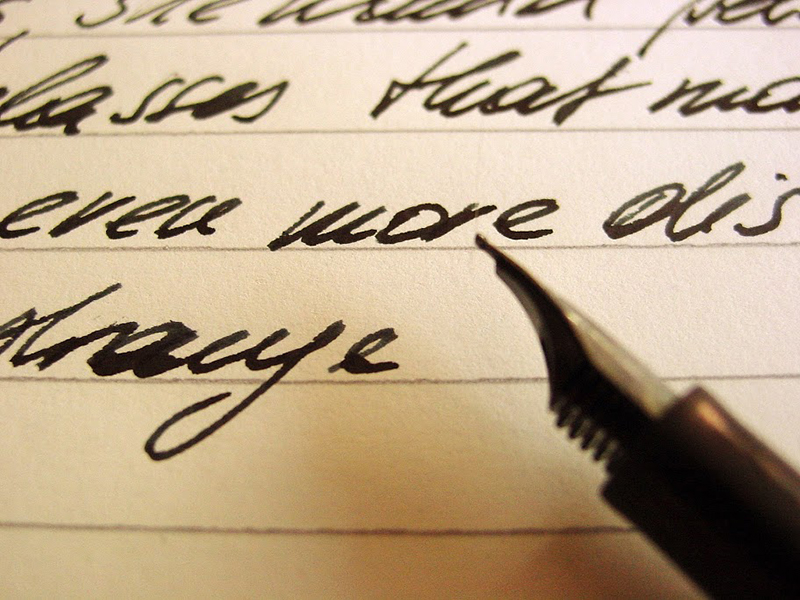 she would
glasses that ma
even more dis
strange